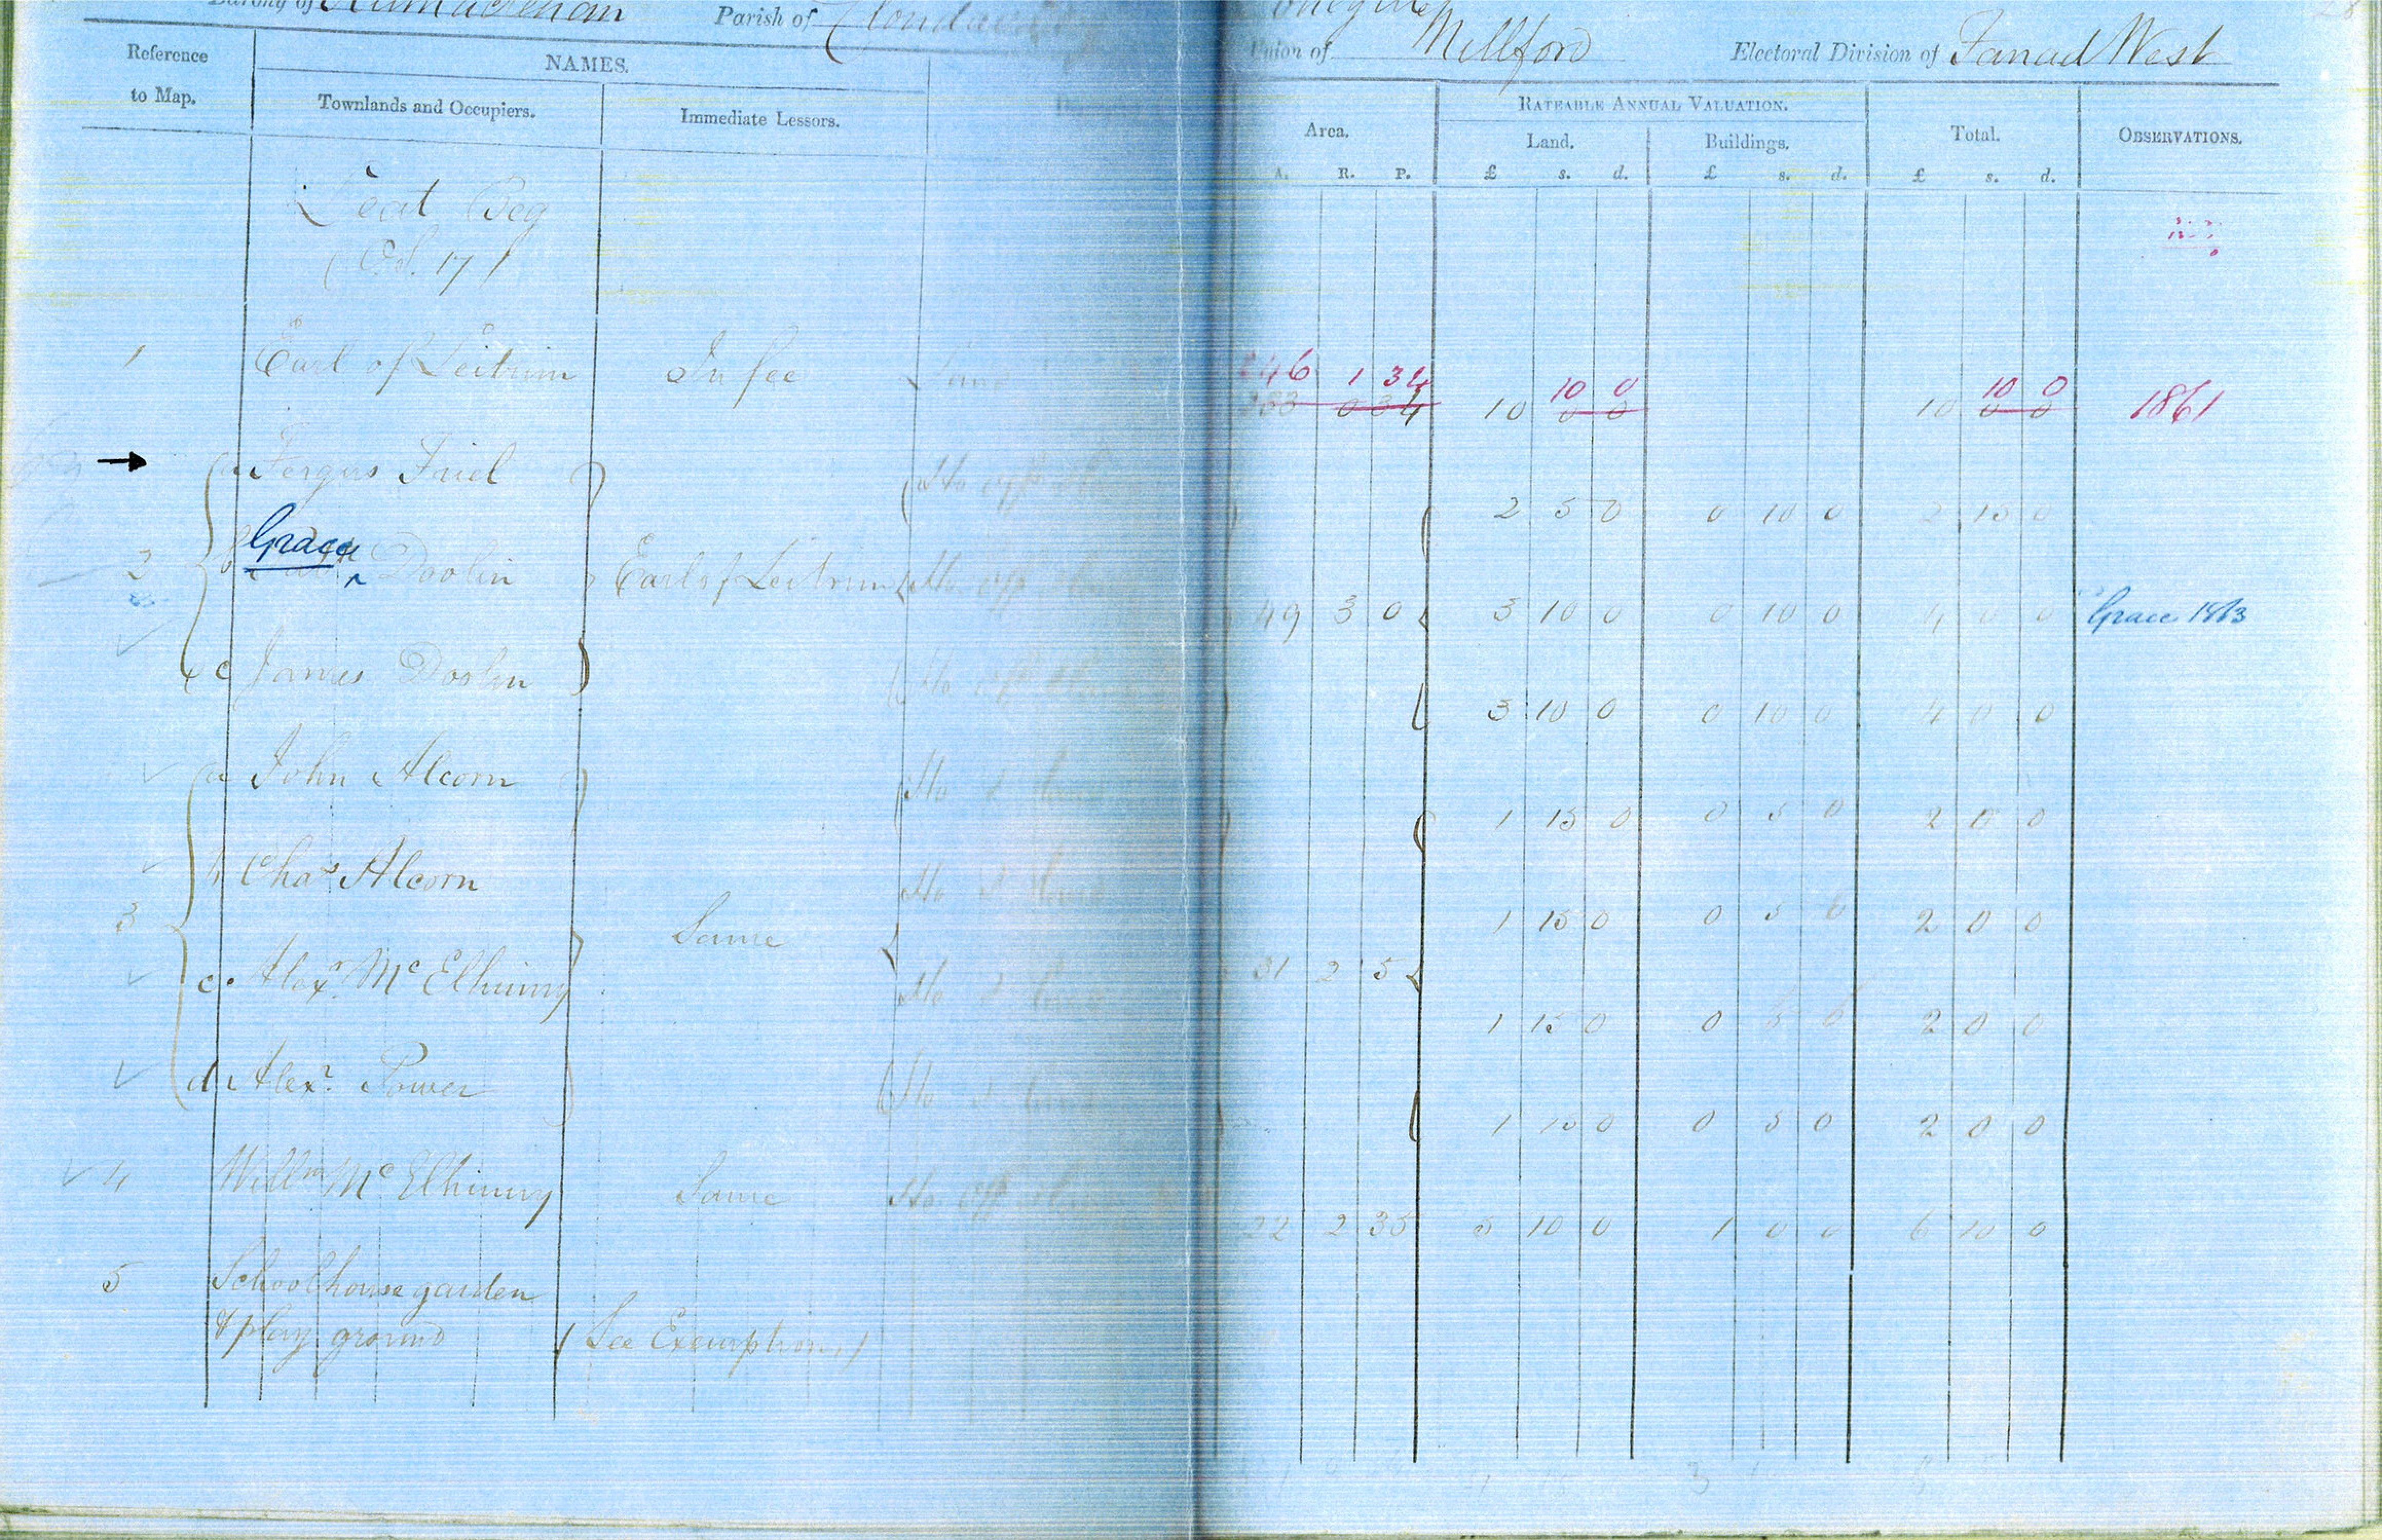 Barony of Kilmacrenan Parish of Clondavaddog
Union of Millford Electoral Division of Fanad West
Reference to Map. NAMES. Area. RATEABLE ANNUAL VALUATION. Total. OBSERVATIONS.
Townlands and Occupiers. Immediate Lessors. Land. Buildings.
A. R. P. £ s. d. £ s. d. £ s. d.
Leat Beg
(Od. 17)
1 Earl of Leitrim In fee Land 246 1 34 10 10 0 10 10 0 1861
233 0 34 0 0 0 0
a Fergus Friel Ho off Land 2 5 0 0 10 0 2 15 0
Grace
2 b Doolin Earl of Leitrim Ho off Land 49 3 0 3 10 0 0 10 0 4 0 0 Grace 1863
c James Doolin Ho off Land 3 10 0 0 10 0 4 0 0
a John Alcorn Ho & land 1 15 0 0 5 0 2 0 0
b Chas Alcorn Ho & land 1 15 0 0 5 0 2 0 0
3 Same 31 2 5
c Alexr. McElhinny Ho & land 1 15 0 0 5 0 2 0 0
d Alexr. Power Ho & land 1 15 0 0 5 0 2 0 0
4 Willm McElhinny Same Ho off Land 22 2 35 5 10 0 1 0 0 6 10 0
5 Schoolhouse garden
& play ground (See Exemptions)